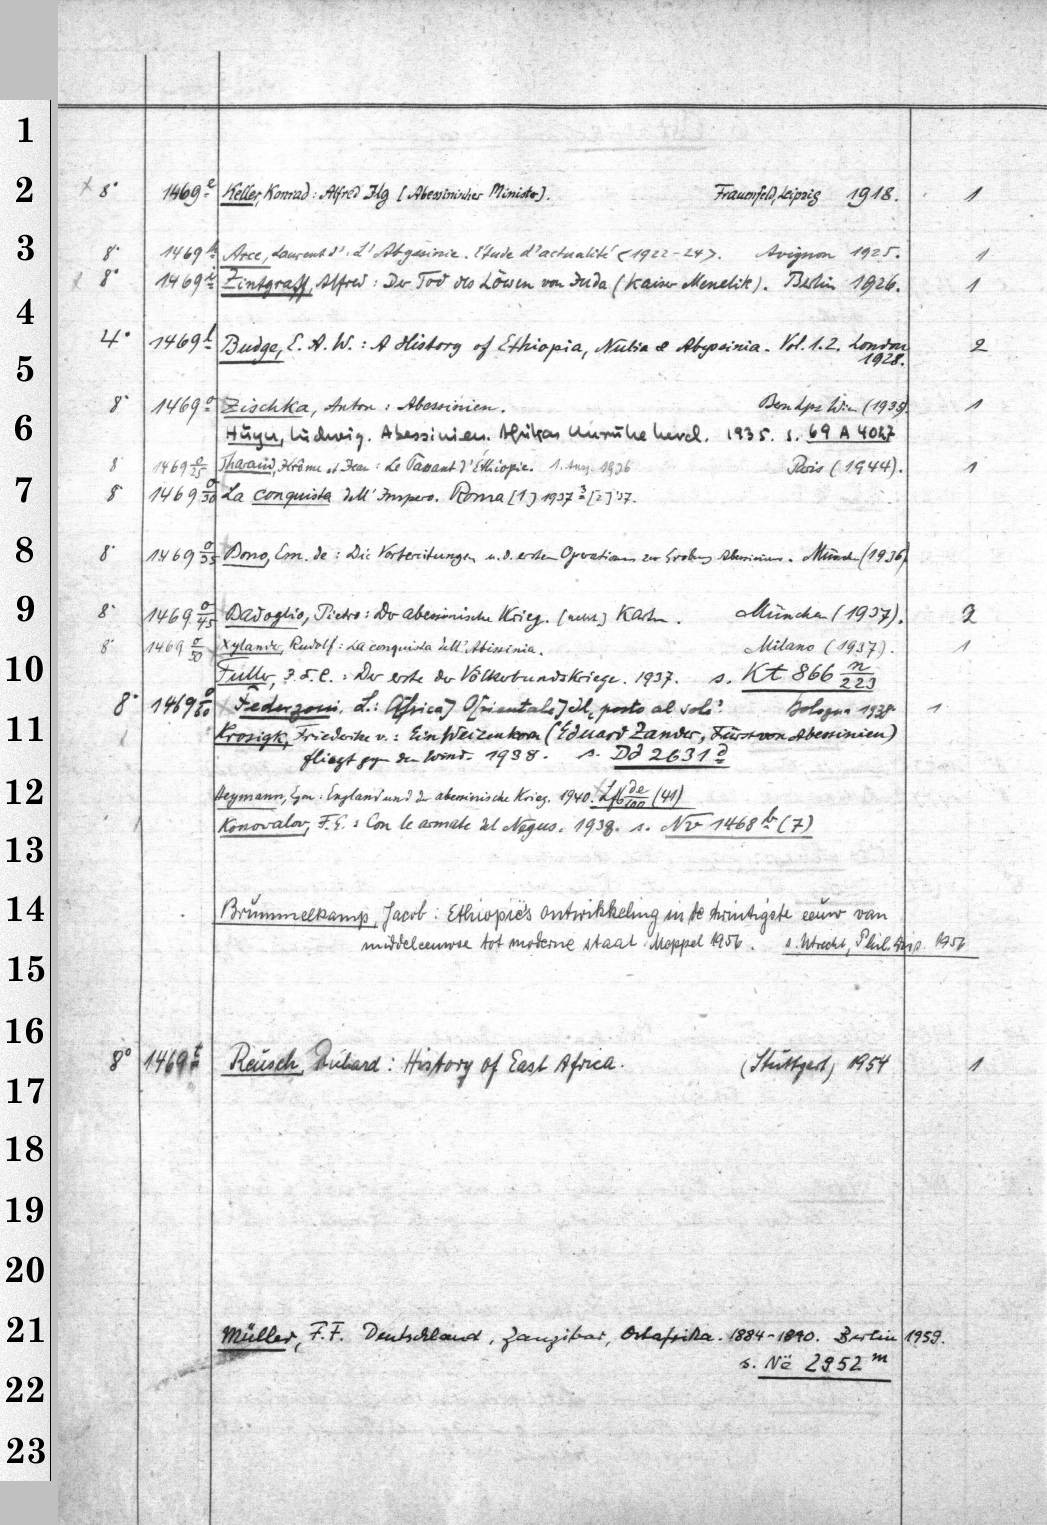 1
2
3
4
5
6
7
8
9
10
11
12
13
14
15
16
17
18
19
20
21
22
23
8° 1469 e Keller, Konrad: Alfred Ilg [Abessinischer Minister]. Frauenfeld, Leipzig 1918. 1
8° 1469 h Arce, Laurent d': L'Abyssinie. Etude d'actualité <1922-24>. Avignon 1925. 1
8° 1469 i Zintgraff, Alfred: Der Tod des Löwen von Juda (Kaiser Menelik). Berlin 1926. 1
4° 1469 l Budge, E. A. W.: A History of Ethiopia, Nubia & Abyssinia. Vol. 1.2. London 2
1928.
8° 1469 o Zischka, Anton: Abessinien. Bern Lpz Wien (1935) 1
Huyn, Ludwig. Abessinien. Afrikas Unruhe herd. 1935. s. 69 A 4047
8° 1469 o/25 Tharaud, Jérôme et Jean: Le Passant d'Éthiopie. 1936 Paris (1944). 1
8° 1469 o/30 La conquista dell' Impero. Roma [1] 1937
8° 1469 o/35 Bono, Em. de: Die Vorbereitungen u. d. ersten Operationen zur Erobrg Abessiniens. München (1936)
8° 1469 o/45 Badoglio, Pietro: Der abessinische Krieg. [nebst] Karten. München (1937). 2
8° 1469 o/50 Xylander, Rudolf: La conquista dell'Abissinia. Milano (1937). 1
Fuller, J. F. C.: Der erste der Völkerbundskriege. 1937. s. Kt 866 n/223
8° 1469 o/60 Federzoni, L.: A[frica] O[rientale] il posto al sole. Bologna 1938 1
Krosigk, Friederike v.: Ein Weizenkorn (Eduard Zander, Fürst von Abessinien)
fliegt gegen den Wind. 1938. s. Dd 2631 d
Heymann, Egon: England und der abessinische Krieg. 1940. de/100 (41)
Konovalov, F. E.: Con le armate del Negus. 1938. s. Nv 1468 b (7)
Brummelkamp, Jacob: Ethiopië's ontwikkeling in de twintigste eeuw van
middeleeuwse tot moderne staat Meppel 1956. s. Utrecht, Phil. Diss. 1956
8° 1469 t Reusch, Richard: History of East Africa. (Stuttgart) 1954 1
Müller, F. F. Deutschland, Zanzibar, Ostafrika. 1884-1890. Berlin 1959.
s. Në 2952 m